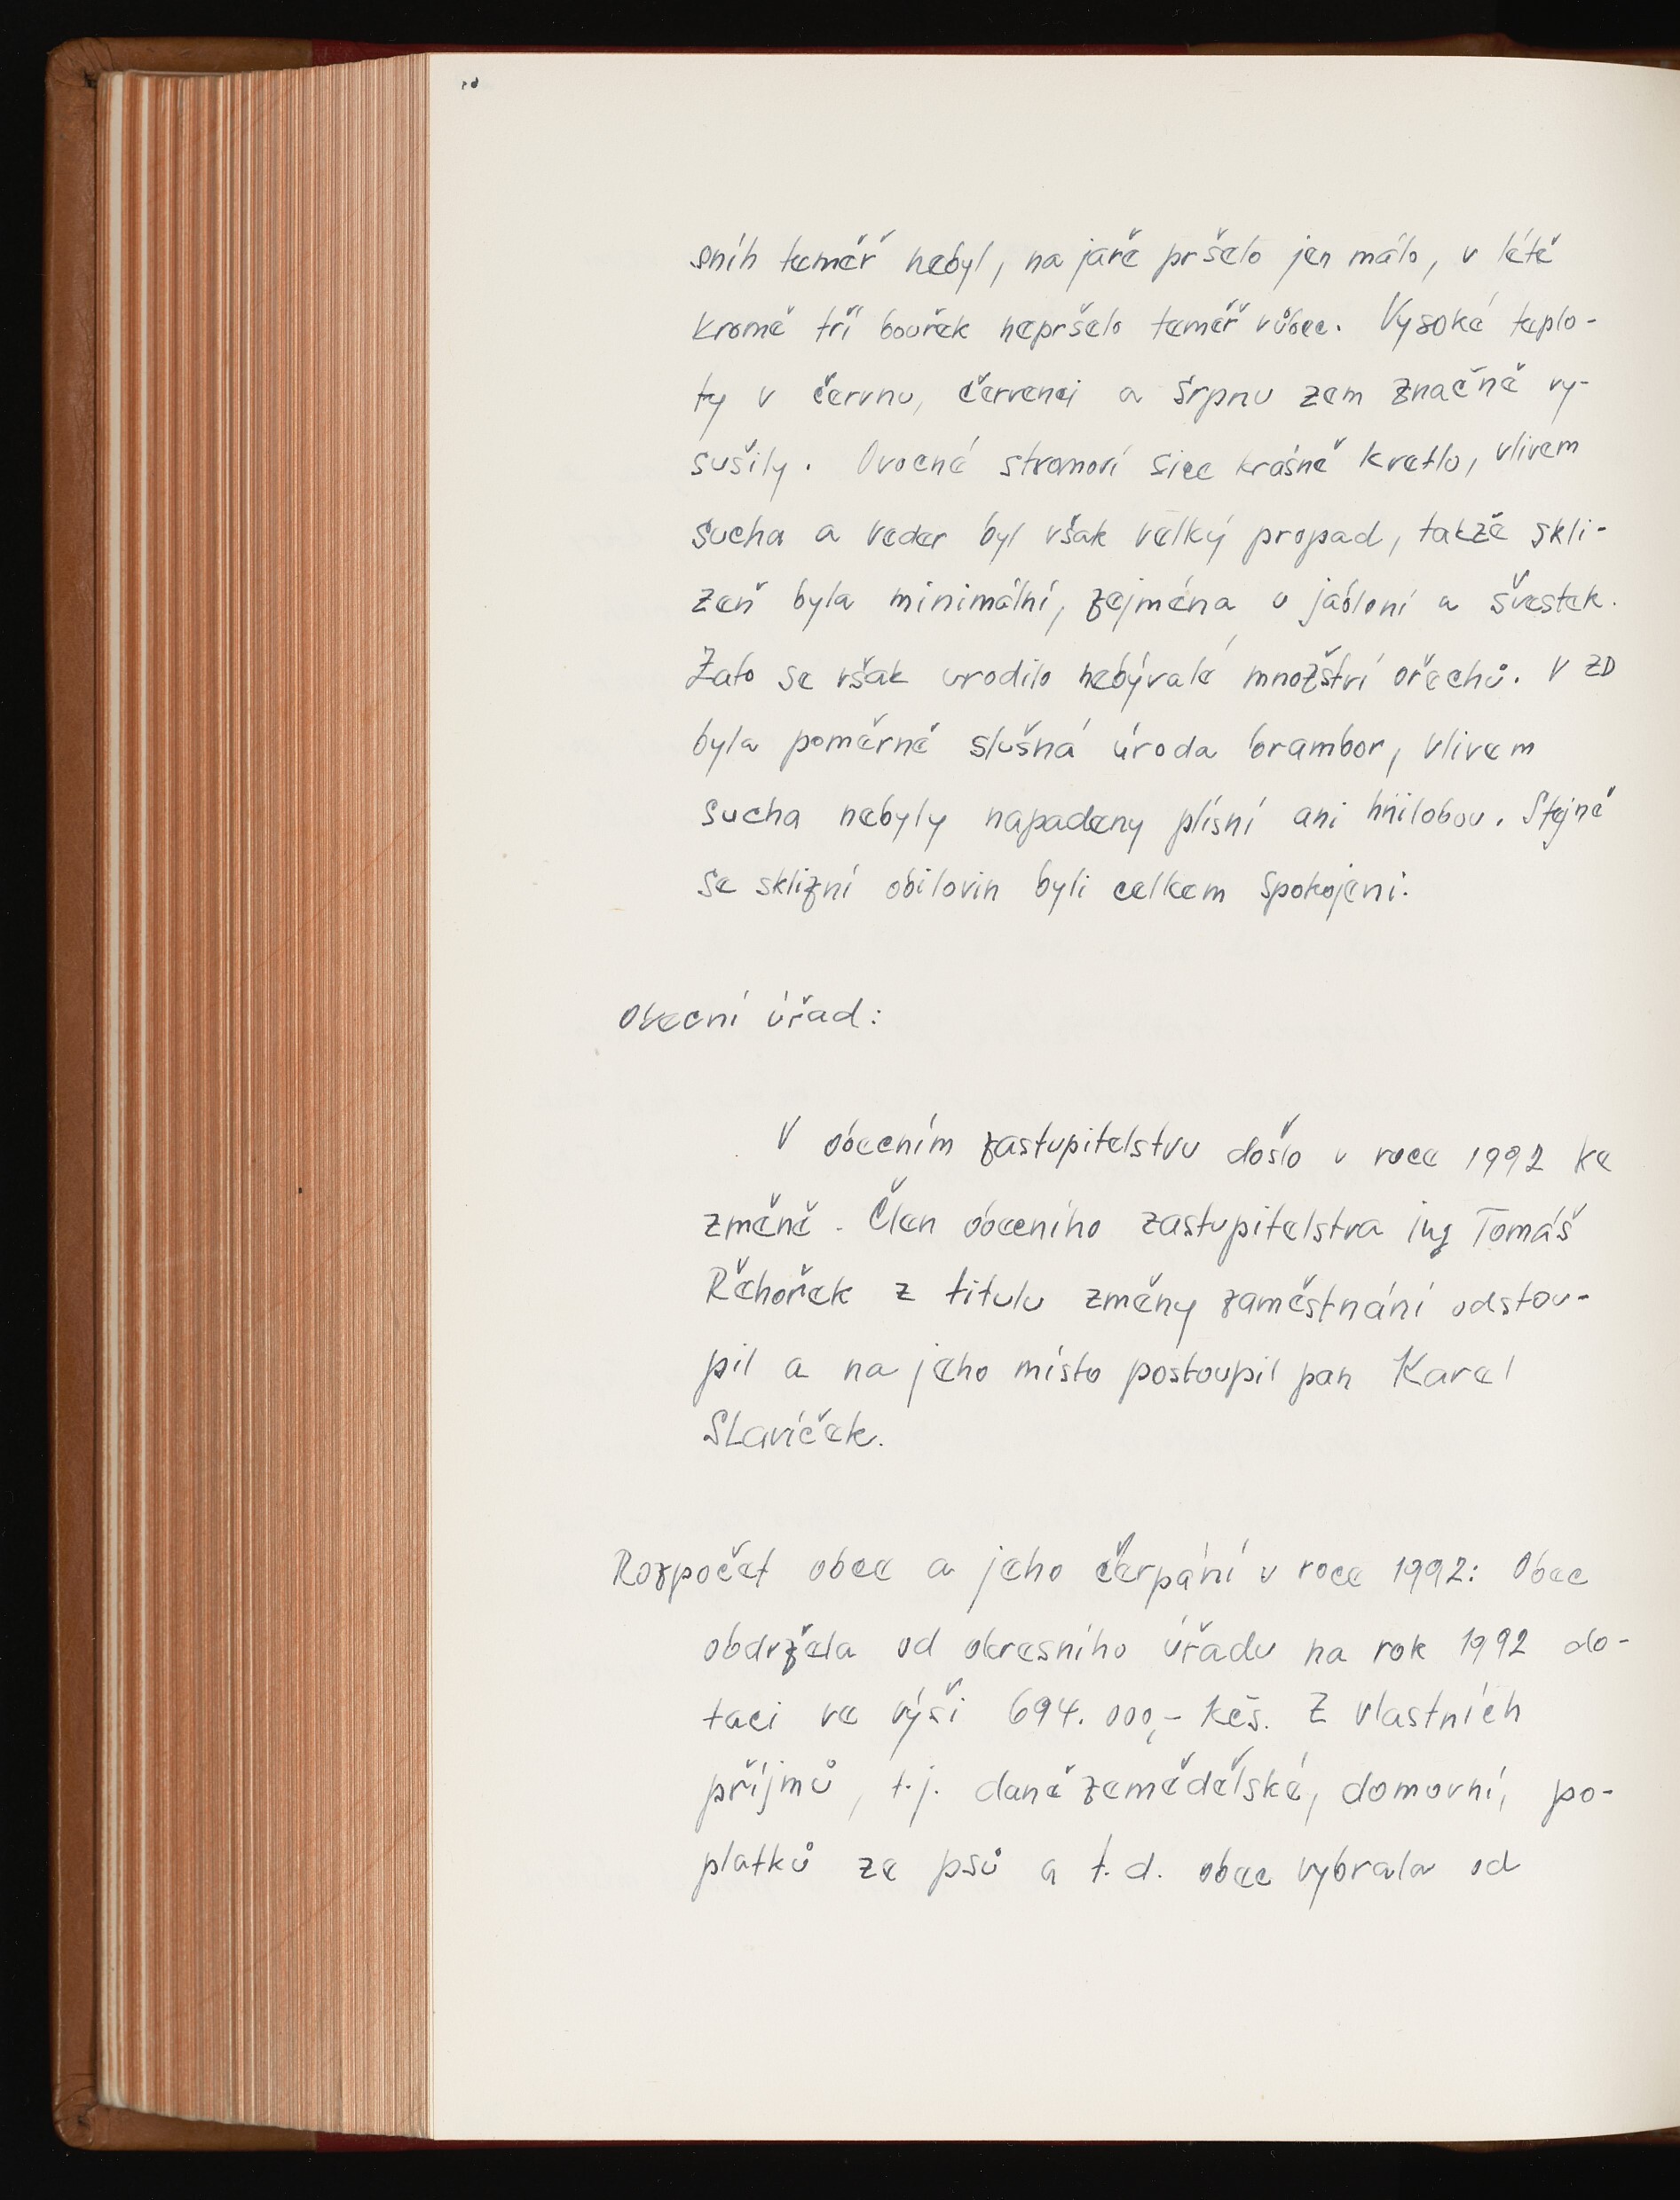 sníh téměř nebyl, na jaře pršelo jen málo, v létě
kromě tří bouřek nepršelo téměř vůbec. Vysoké teplo-
ty v červnu, červenci a srpnu zem značně vy-
sušily. Ovocné stromoví sice krásně kvetlo, vlivem
sucha a veder byl však velký propad, takže skli-
zeň byla minimální, zejména u jabloní a švestek.
Zato se však urodilo nebývalé množství ořechů. V ZD
byla poměrně slušná úroda brambor, vlivem
sucha nebyly napadeny plísní ani hnilobou. Stejně
se sklizní obilovin byli celkem spokojeni.
Obecní úřad:
V obecním zastupitelstvu došlo v roce 1992 ke
změně. Člen obecního zastupitelstva ing Tomáš
Řehořek z titulu změny zaměstnání odstou-
pil a na jeho místo postoupil pan Karel
Slavíček.
Rozpočet obce a jeho čerpání v roce 1992: Obec
obdržela od okresního úřadu na rok 1992 do-
taci ve výši 694.000,- Kčs. Z vlastních
příjmů, t.j. daně zemědělské, domovní, po-
platků ze psů a t.d. obec vybrala od